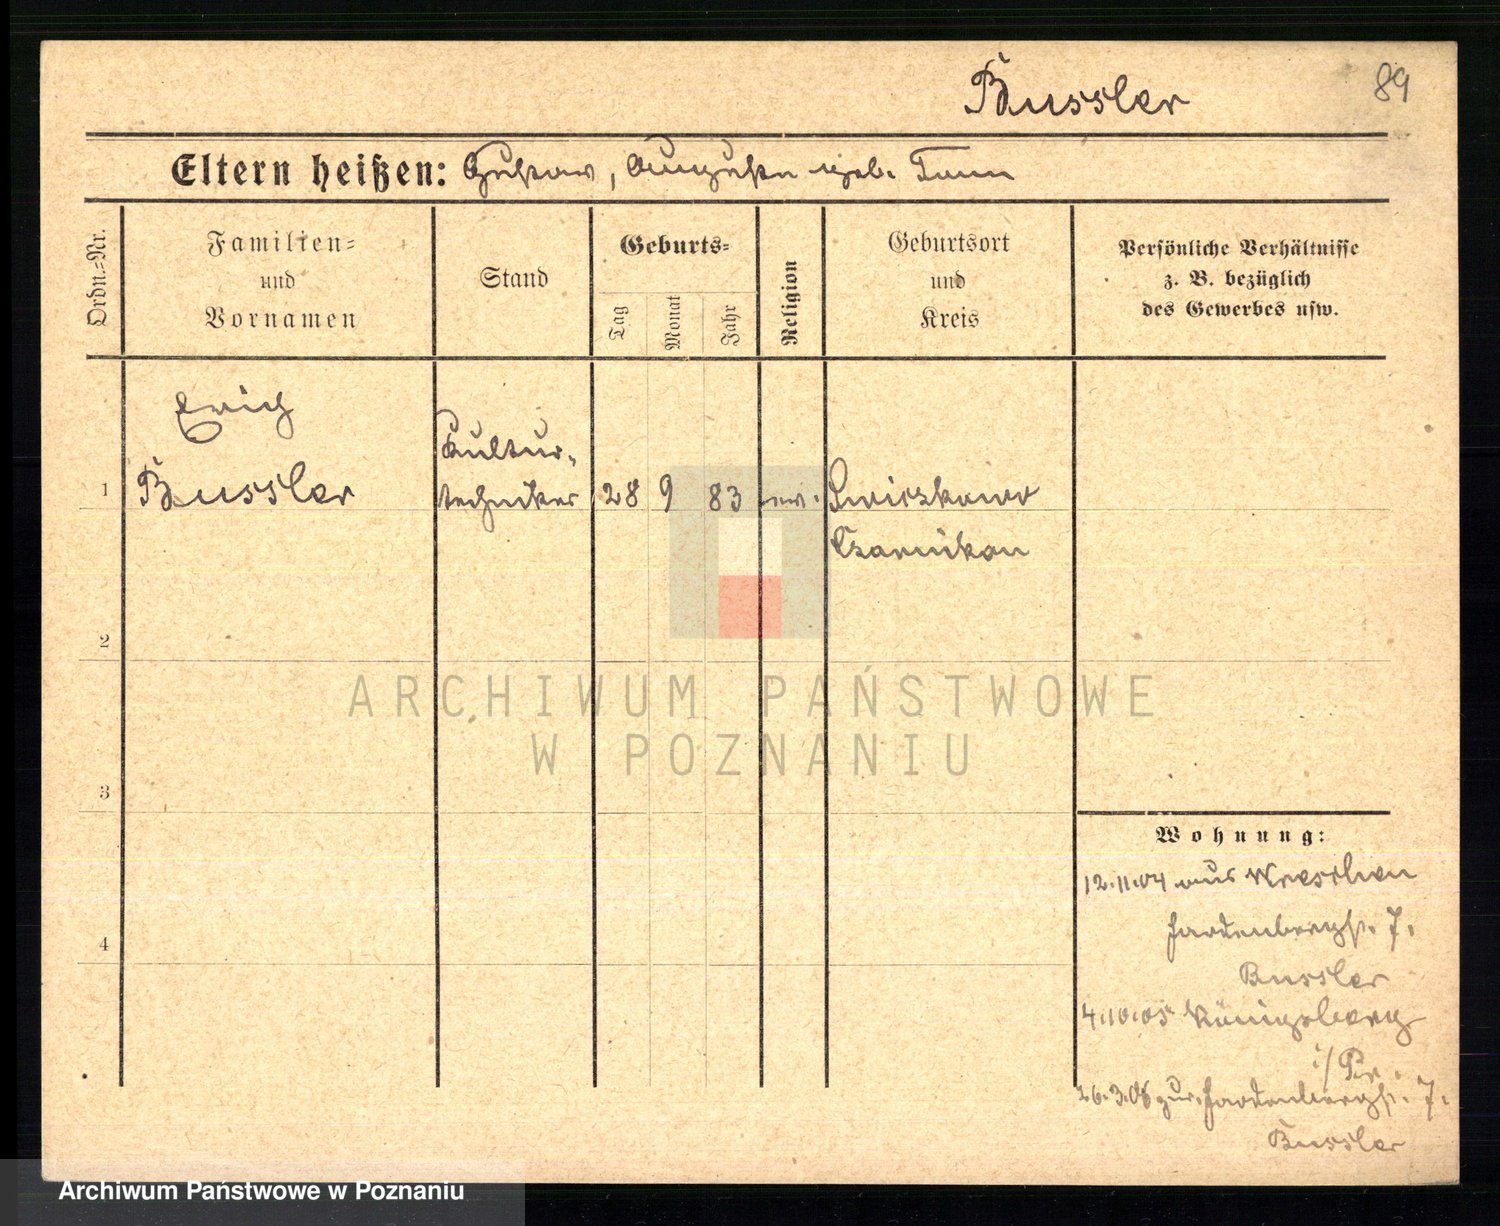 89
Bussler
Eltern heißen: Gustav, Auguste geb. Tonn
Ordn.=Nr.
Familien=
und
Vornamen
Stand
Geburts=
Tag
Monat
Jahr
Religion
Geburtsort
und
Kreis
Persönliche Verhältnisse
z. B. bezüglich
des Gewerbes usw.
Erich
1 Bussler
Kultur-
techniker
28 9 83 ev.
Czarnikau
2
3
4
Wohnung:
12.11.04 aus Wreschen
Hardenbergst. 7.
Bussler
4.10.05 Königsberg
i/Pr.
26.3.06 zur. Hardenbergst. 7.
Bussler
ARCHIWUM PAŃSTWOWE
W POZNANIU
Archiwum Państwowe w Poznaniu